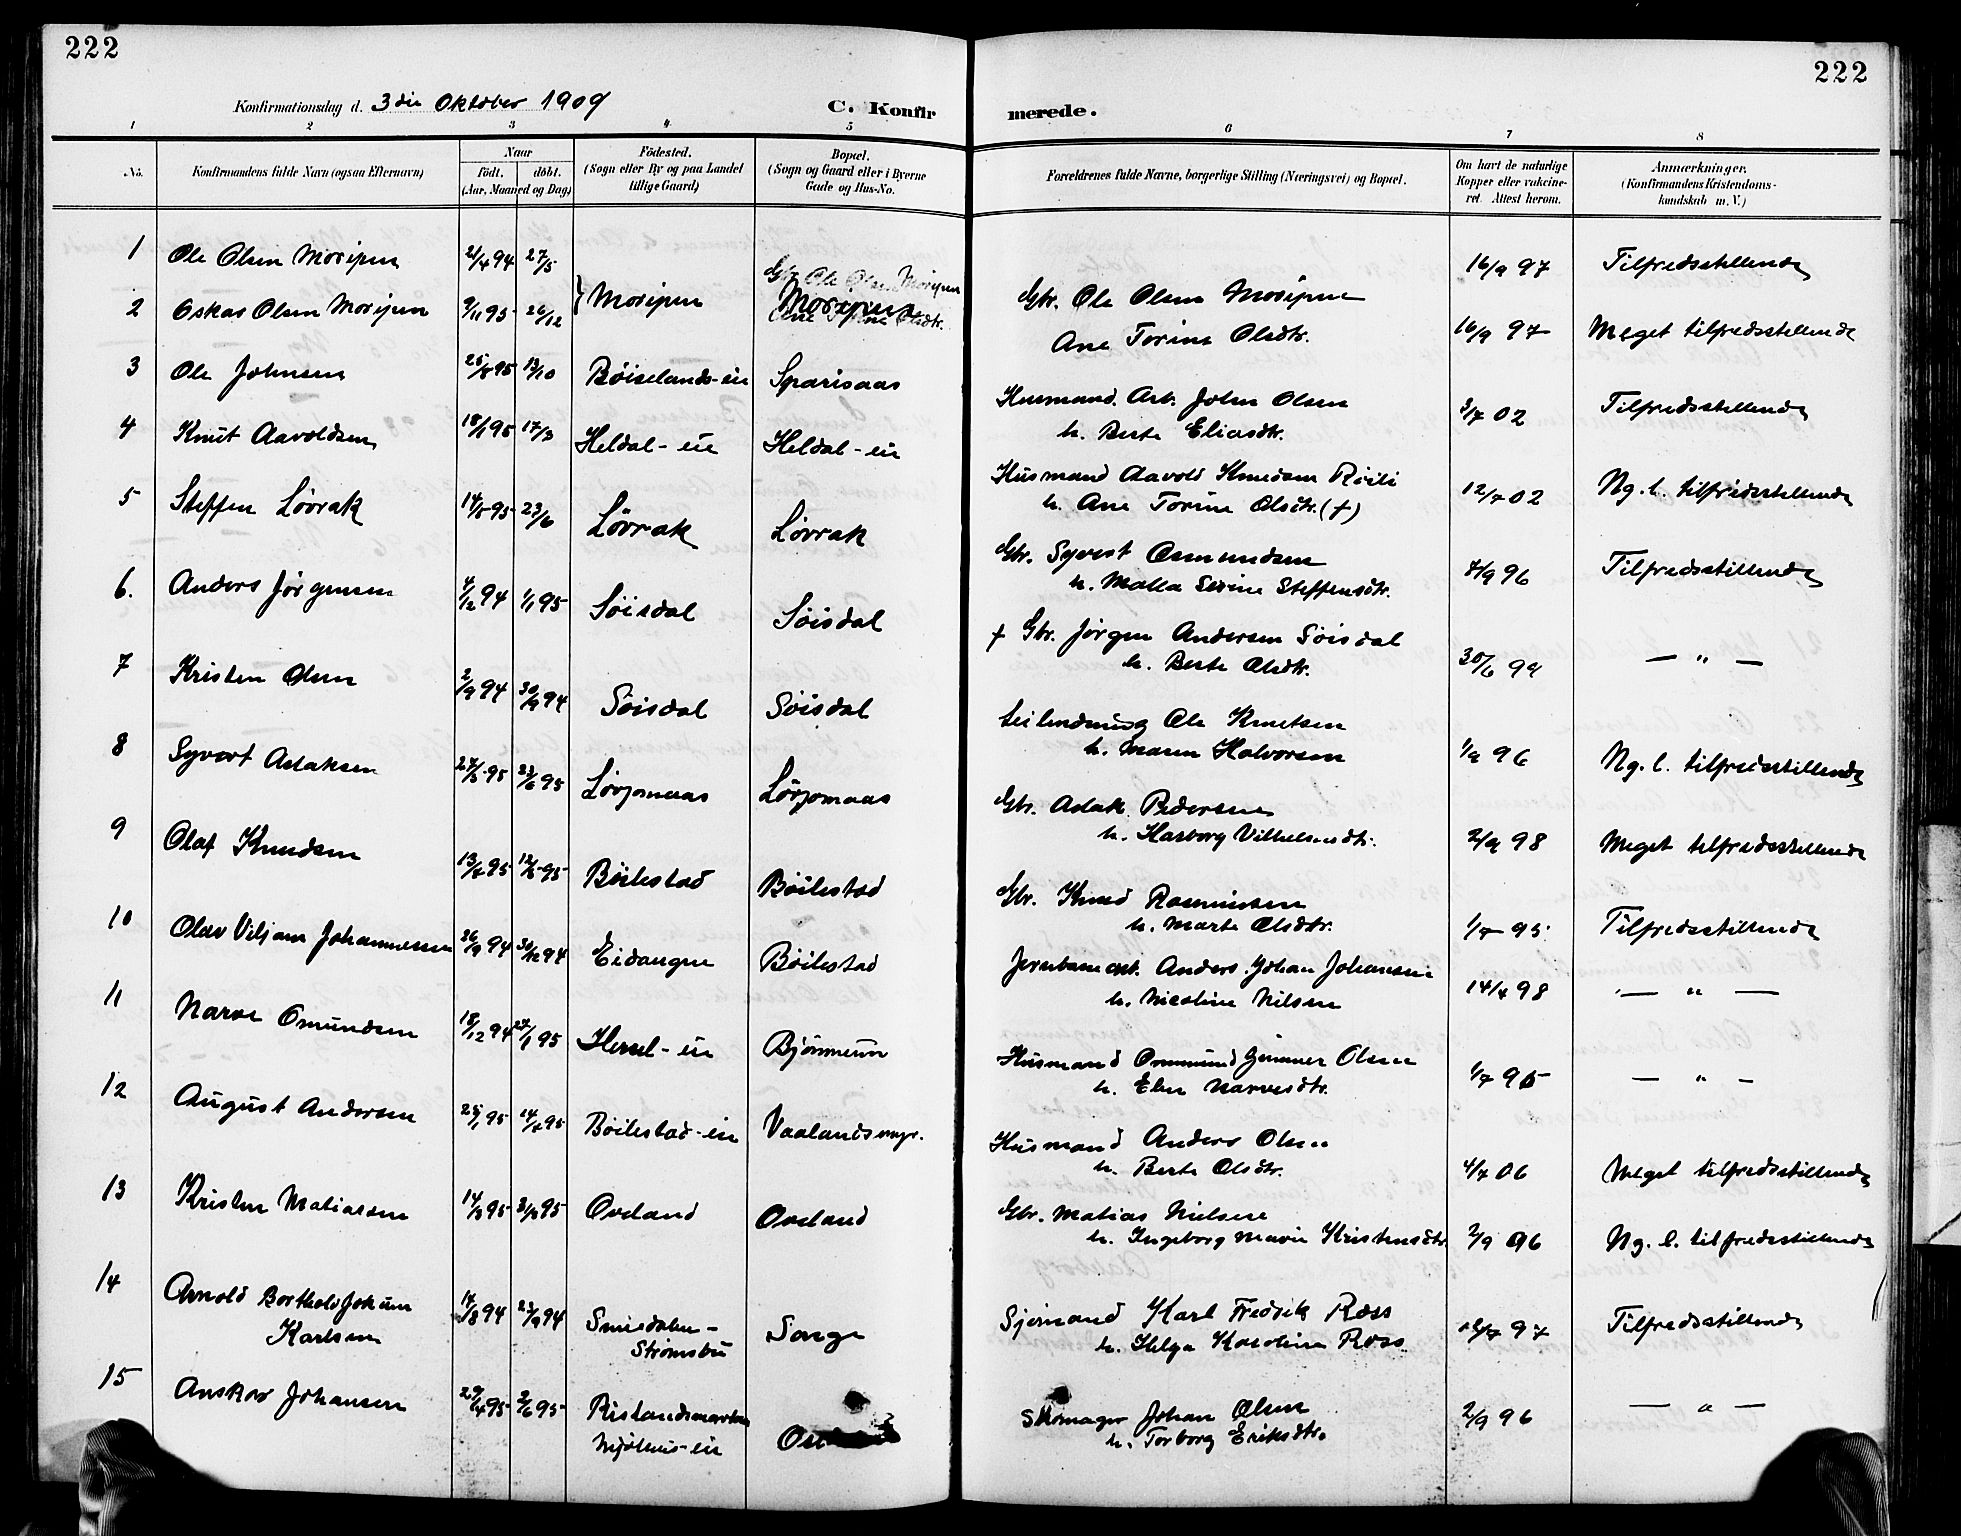 222
222
Konfirmationsdag d. 3die Oktober 1909
C. Konfirmerede.
1 2 3 4 5 6 7 8
No.
Konfirmandens fulde Navn (ogsaa Efternavn)
Naar
født. døbt.
(Aar, Maaned og Dag)
Fødested.
(Sogn eller By og paa Landet
tillige Gaard)
Bopæl.
(Sogn og Gaard eller i Byerne
Gade og Hus-No.
Forældrenes fulde Navne, borgerlige Stilling (Næringsvei) og Bopæl.
Om havt de naturlige
Kopper eller vakcine-
ret. Attest herom.
Anmærkninger.
(Konfirmandens Kristendoms-
kundskab m. V.)
1 Ole Olsen Moripen 21/4 94 27/5 Moripen Moripen Gbr. Ole Olsen Moripen 16/9 97 Tilfredsstillende
2 Oskar Olsen Moripen 9/11 95 26/12 Ane Torine Olsdtr. 16/9 97 Meget tilfredsstillende
3 Ole Johnsen 25/8 95 13/10 Bøiselands-eie Sparisaas Husmand. Arb. John Olsen 3/7 02 Tilfredsstillende
h. Berte Eliasdtr.
4 Knut Aavoldsen 18/1 95 17/3 Heldal-eie Heldal-eie Husmand Aavold Knudsen Røili 12/7 02 Ng. l. tilfredsstillende
h. Ane Torine Olsdtr. (†)
5 Steffen Løvrak 14/5 95 23/6 Løvrak Løvrak Gbr. Syvert Osmundsen 7/9 96 Tilfredsstillende
h. Malla Serine Steffensdtr.
6. Anders Jørgensen 4/12 94 1/1 95 Søisdal Søisdal † Gbr. Jørgen Andersen Søisdal 30/6 99 — " —
h. Berte Olsdtr.
7 Kristen Olsen 2/9 94 30/9 94 Søisdal Søisdal Leilending Ole Knutsen 1/9 96 Ng. l. tilfredsstillende
h. Maren Halvorsen
8 Syvert Aslaksen 27/5 95 23/6 95 Løvjomaas Løvjomaas Gbr. Aslak Pedersen 2/9 98 Meget tilfredsstillende
h. Karborg Vilhelmsdtr.
9 Olaf Knudsen 13/4 95 12/5 95 Bøilestad Bøilestad Gbr. Knud Rasmussen 1/7 95 Tilfredsstillende
h. Marte Olsdtr.
10 Olav Viljam Johannessen 26/9 94 30/12 94 Eidanger Bøilestad Jernbanearb. Anders Johan Johansen 14/4 98 — " —
h. Nicoline Nilsen
11 Narve Omundsen 18/12 94 27/1 95 Hessel-eie Bjønneun Husmand Ommund Gunner Olsen 1/7 95 — " —
h. Elen Narvesdtr.
12 August Andersen 25/1 95 14/4 95 Bøilestad-eie Vaalandsmyr. Husmand Anders Olsen 4/7 06 Meget tilfredsstillende
h. Berte Olsdtr.
13 Kristen Matiassen 14/3 95 31/3 95 Oveland Oveland Gbr. Matias Nielsen 2/9 96 Ng. l. tilfredsstillende
h. Ingeborg Marie Kristensdtr.
14 Arnold Berthold Johan 14/8 94 23/9 94 Smedalen- Songe Sjømand Karl Fredrik Ross 97 Tilfredsstillende
Karlsen Strømsbu h. Helga Karoline Ross
15 Anskar Johansen 29/4 95 2/6 95 Skomager Johan Olsen 2/9 96 — " —
Mjølhus-eie h. Torborg Eriksdtr.